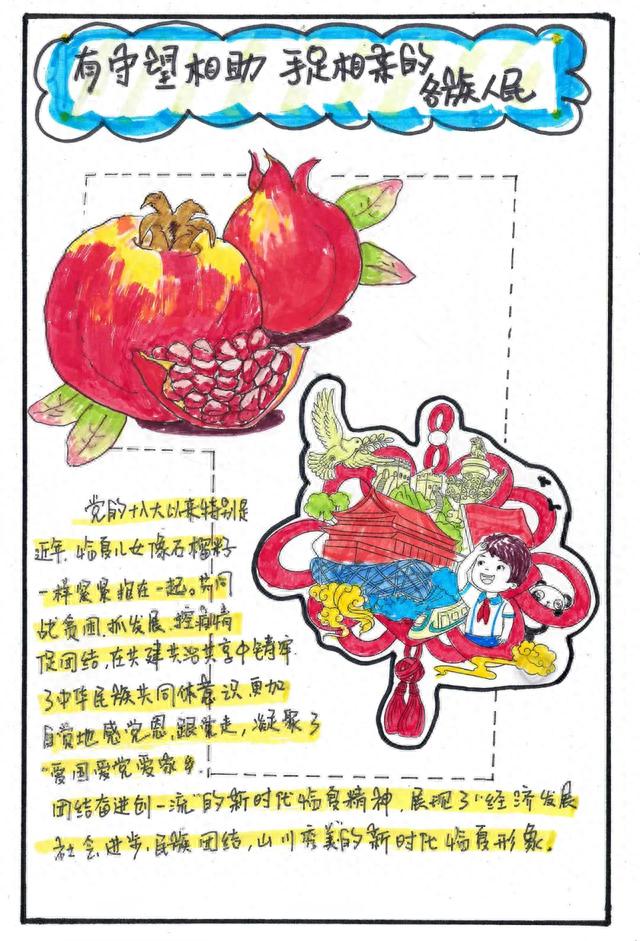 有守望相助 手足相亲的
各族人民
党的十八大以来特别是
近年,临夏儿女像石榴籽
一样紧紧抱在一起。共同
战贫困,抓发展、控疫情
促团结,在共建共治共享中铸牢
了中华民族共同体意识,更加
自觉地感党恩,跟党走,凝聚了
“爱国爱党爱家乡.
团结奋进创一流”的新时代临夏精神,展现了“经济发展
社会进步,民族团结,山川秀美的新时代临夏形象.